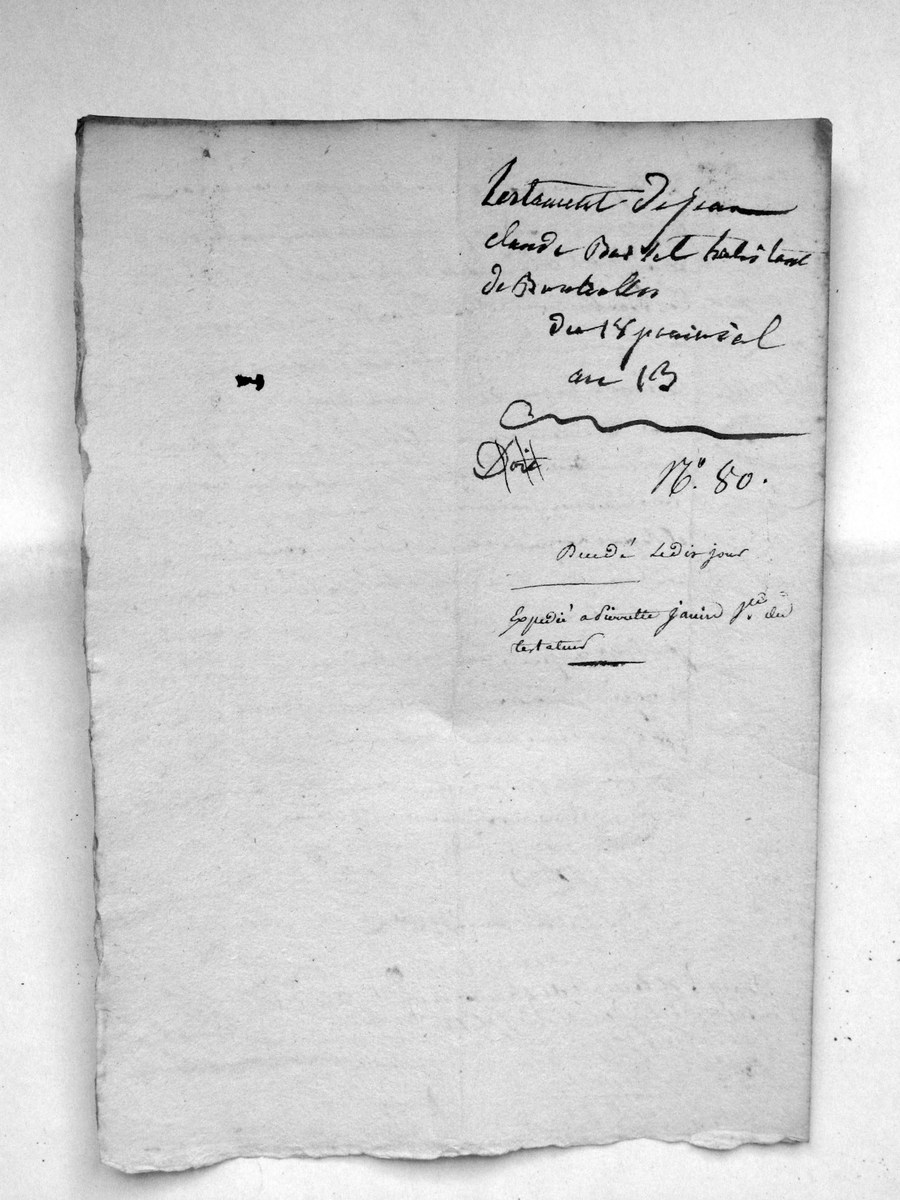 testament De jean
claude habitant
de
du 18 prairial
an 13
Doit
N°. 80.
Ledit jour
Expedié a Pierrette janin du
testateur